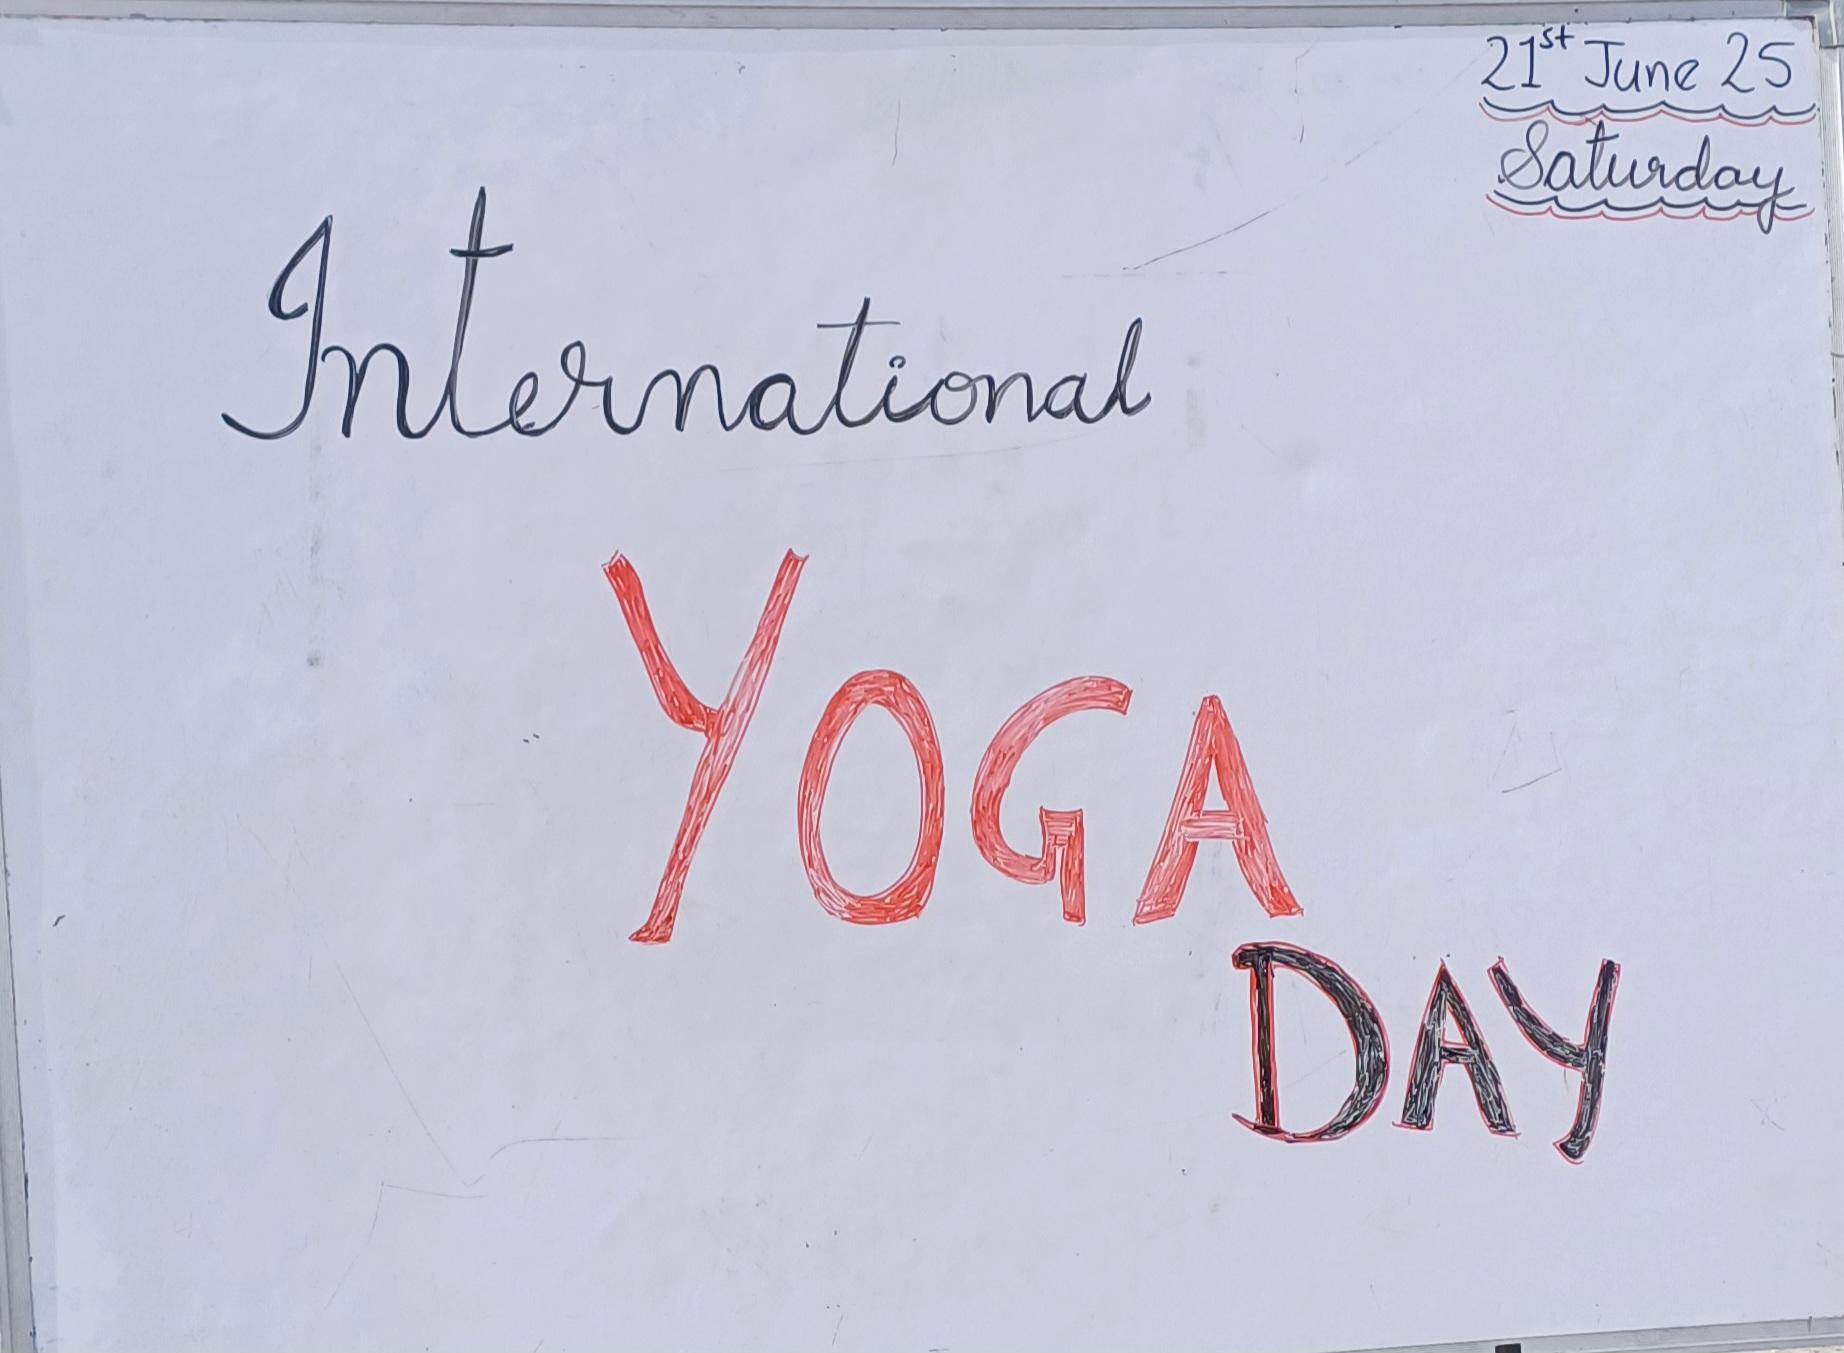 21st June 25
Saturday
International
YOGA
DAY